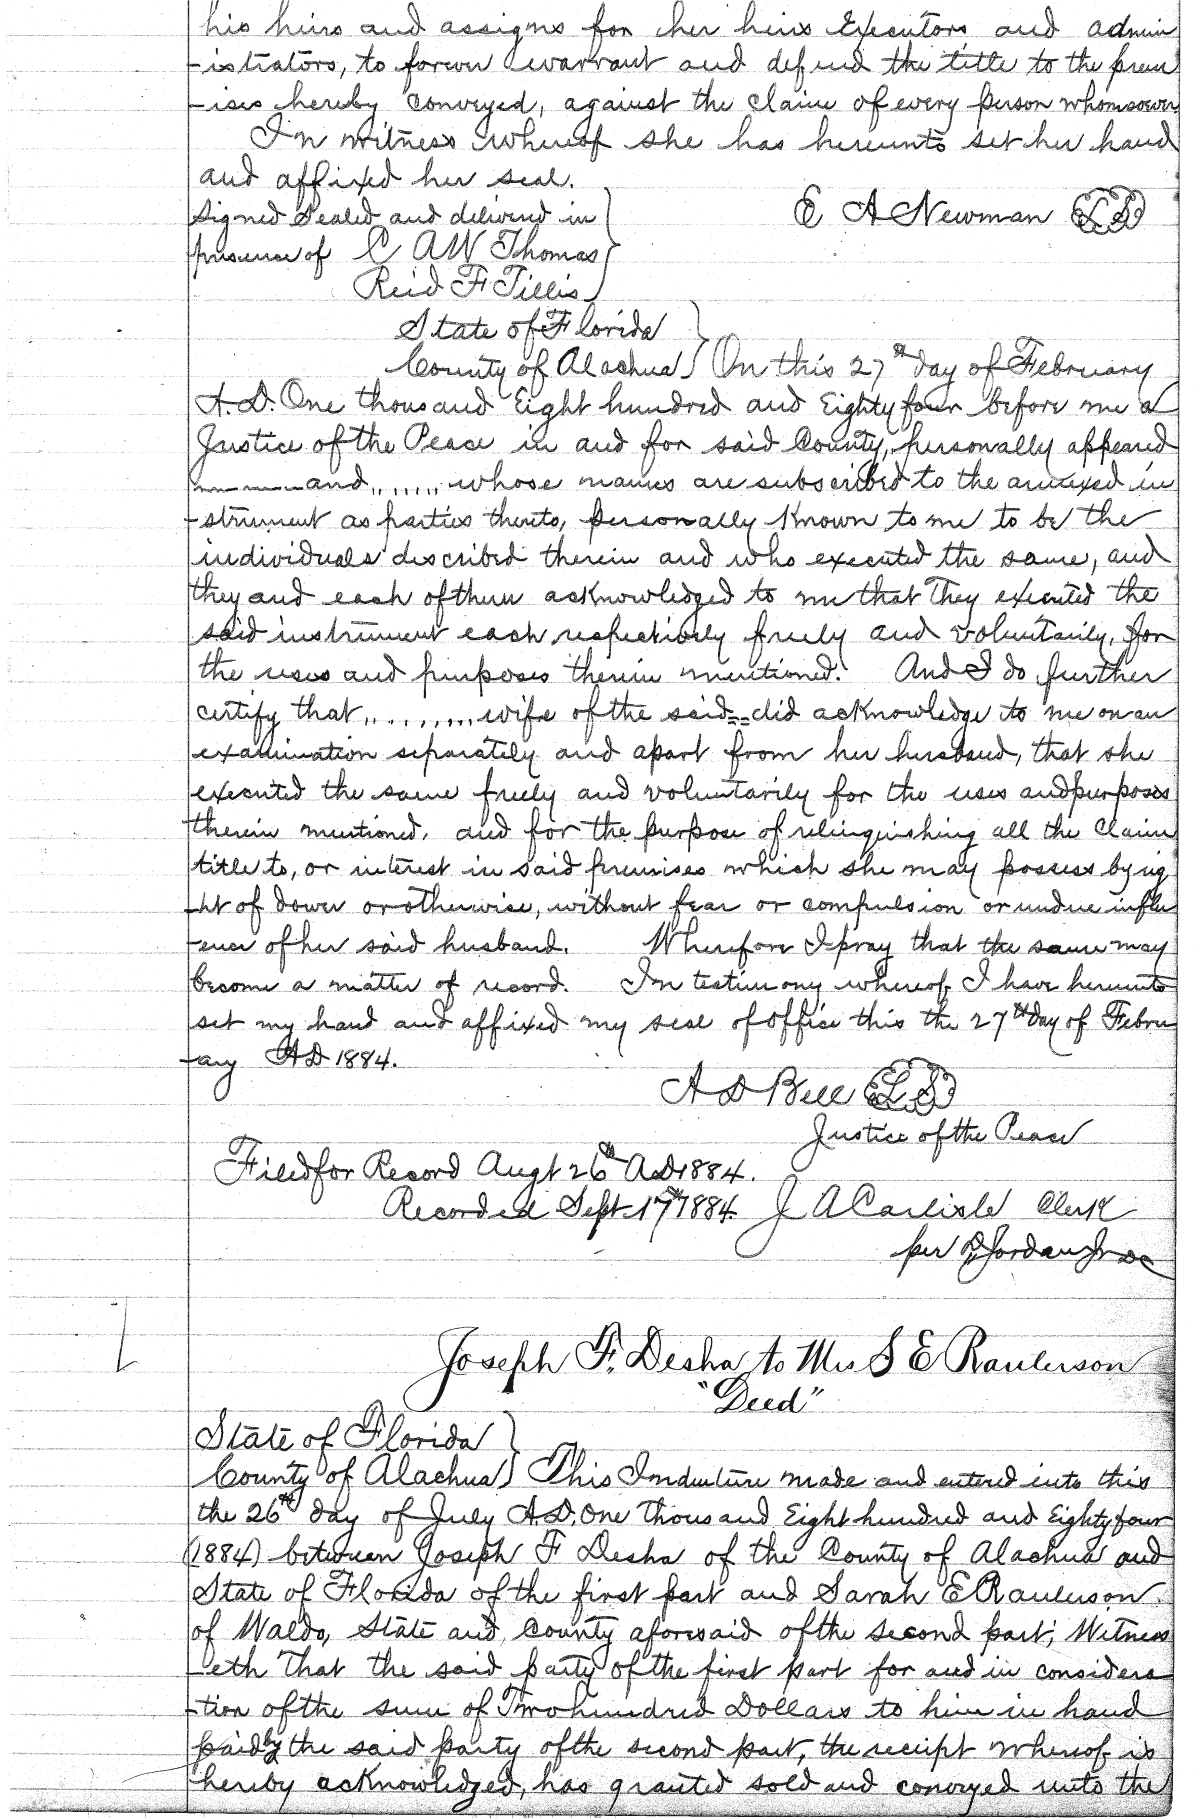 his heirs and assigns for her heirs Executors and admin
-istrators, to forever warrant and defend the title to the prem
-ises hereby conveyed, against the claim of every person whomsoever
In witness whereof she has hereunto set her hand
and affixed her seal.
Signed Sealed and delivered in
E A Newman LS
presence of C A W Thomas
Reid F Tillis
State of Florida
County of Alachua } On this 27th day of February
A.D. One thousand Eight hundred and Eighty four before me a
Justice of the Peace in and for said County, personally appeared
........and....... whose names are subscribed to the annexed in
-strument as parties thereto, personally known to me to be the
individuals described therein and who executed the same, and
they and each of them acknowledged to me that They executed the
said instrument each respectively freely and voluntarily, for
the uses and purposes therein mentioned. And I do further
certify that......... wife of the said == did acknowledge to me on an
examination separately and apart from her husband, that she
executed the same freely and voluntarily for the uses and purposes
therein mentioned, and for the purpose of relinquishing all the claim
title to, or interest in said premises which she may possess by rig
-ht of dower or otherwise, without fear or compulsion or undue influ
-ence of her said husband. Wherefore I pray that the same may
become a matter of record. In testimony whereof I have hereunto
set my hand and affixed my seal of office this the 27th day of Febru
-ary AD 1884.
A D Bell LS
Justice of the Peace
Filed for Record Augt 26th AD 1884.
Recorded Sept. 17th 1884. J A Carlisle Clerk
per Jordan Jr DC
Joseph F. Desha to Mrs S E Raulerson
"Deed"
State of Florida
County of Alachua } This Indenture made and entered into this
the 26th day of July A.D. One Thousand Eight hundred and Eighty four
(1884) between Joseph F Desha of the County of Alachua and
State of Florida of the first part and Sarah E Raulerson
of Waldo, State and County aforesaid of the second part; Witness
-eth That the said party of the first part for and in considera
-tion of the sum of Two hundred Dollars to him in hand
paid by the said party of the second part, the receipt whereof is
hereby acknowledged, has granted sold and conveyed unto the